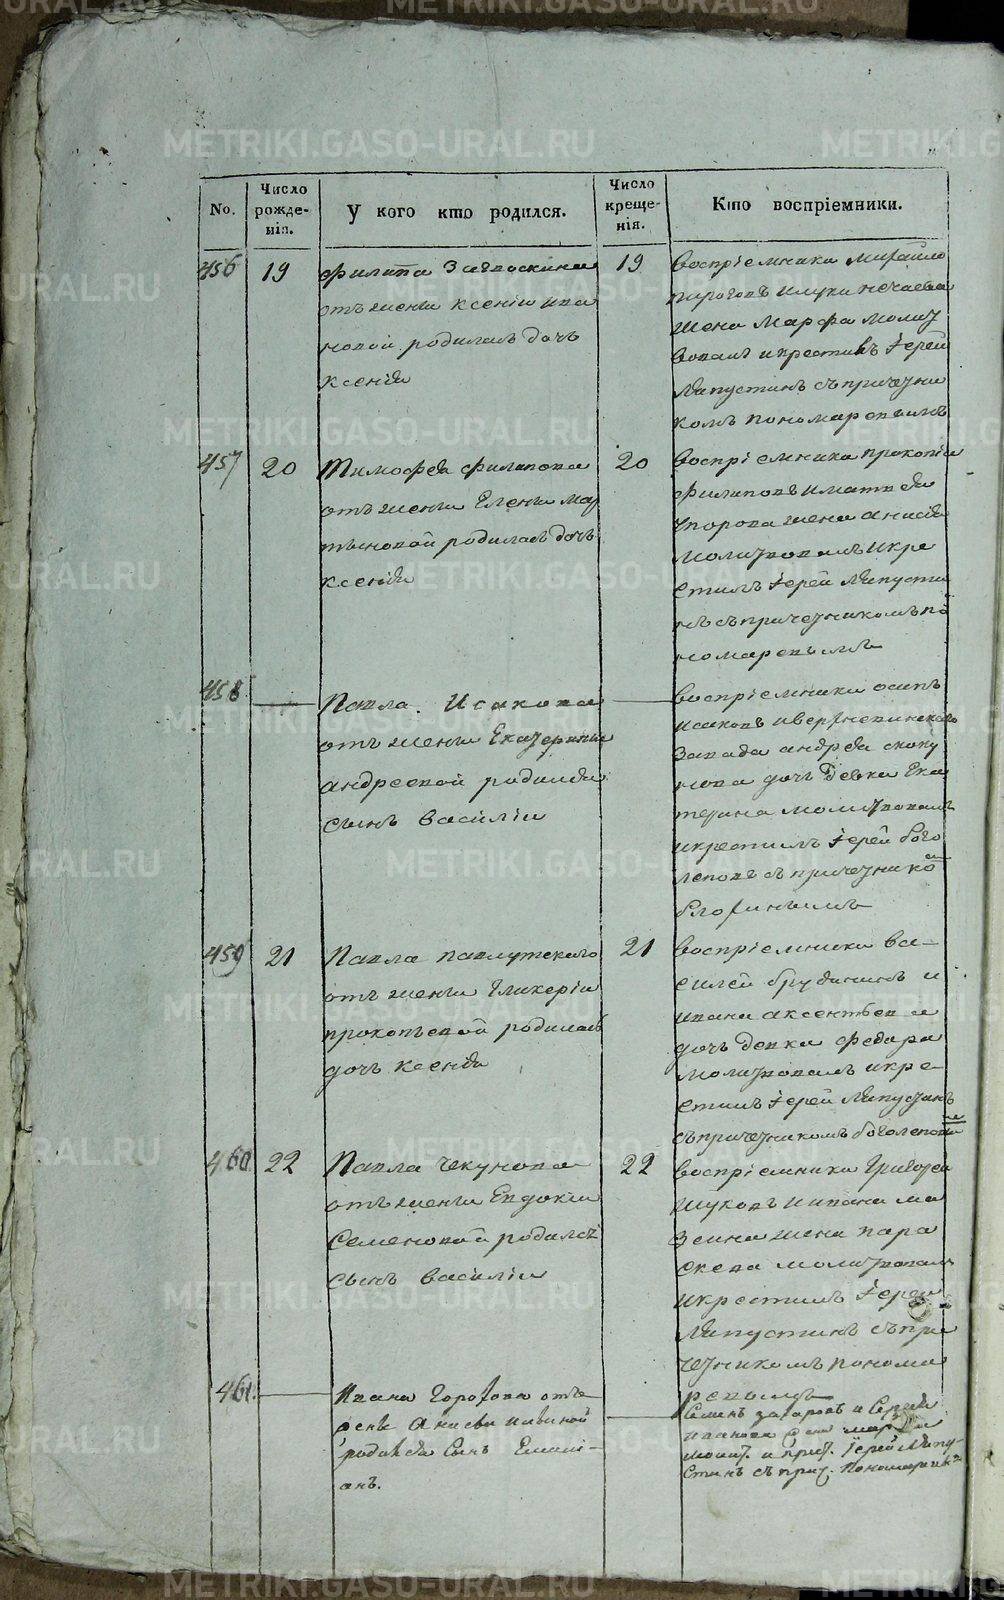 METRIKI.GASO-URAL.RU
No.
Число рожде-нія.
У кого кто родился.
Число креще-нія.
Кто воспріемники.
456
19
Филипа
отъ жены ксеніи ива
новой родилась дочь
ксенія
19
Воспріемники михайло
пироговъ илуки нечаева
жена марфа молит
вовалъ икрестилъ Іерей
Ляпустинъ съпричетни
комъ пономаревымъ
457
20
Тимофея филипова
отъ жены Елены мар
тыновой родилась дочь
ксенія
20
Воспріемники прокопій
филиповъ иматвея
жена анисія
молитвовалъ икре
стилъ Іерей Ляпусти
нъ съпричетникомъ по
номаревымъ
458
Павла Исакова
отъ жены Екатерины
андреевой родился
сынъ василіи
воспріемники осипъ
исаковъ иверхневинскаго
завода андрея
дочь девка Ека
терина молитвовалъ
икрестилъ Іерей бого
леповъ съпричетнико
459
21
Павла павлутскаго
отъ жены Гликеріи
прокопьевой родилась
дочь ксенія
21
Воспріемники ва-
силей брудинъ и
ивана аксентьева
дочь девка федора
молитвовалъ икре-
стилъ Іерей Ляпустинъ
съпричетникомъ боголеповы
460
22
Павла чекунова
отъ жены Евдокіи
Семеновой родился
сынъ василіи
22
воспріемники Григорей
жуковъ иивана ма
зеина жена пара
скева молитвовалъ
икрестилъ Іерей
Ляпустинъ съпри
четникомъ понома
ревымъ
461.
Ивана Горохова отъ
жены Анисьи
родился сынъ Емели-
анъ.
Семенъ захаровъ и Сергея
иванова жена марфа
молит. и крест. Іерей Ляпу-
стинъ съ прич. Пономаревы